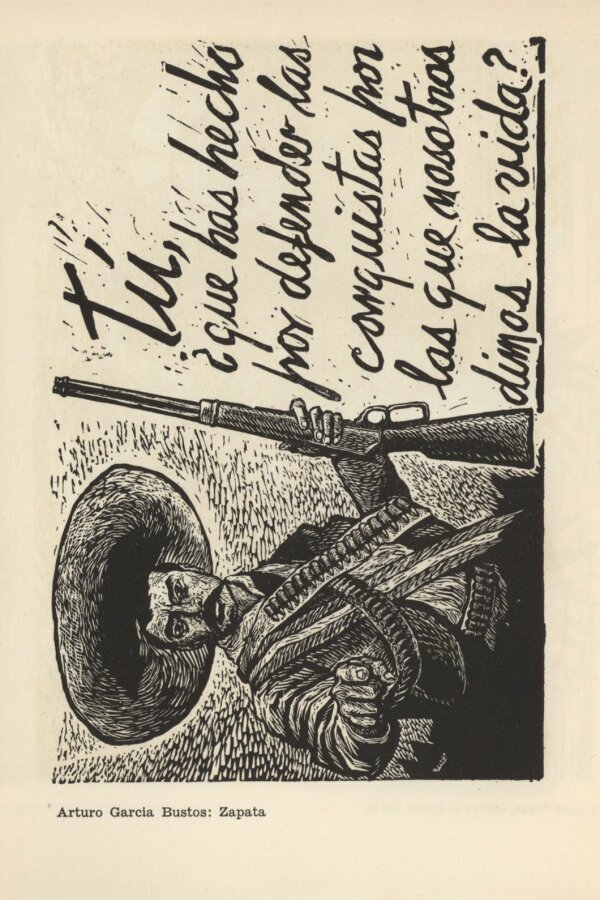 Tú,
¿que has hecho
por defender las
conquistas por
las que nosotros
dimos la vida?
Arturo Garcia Bustos: Zapata